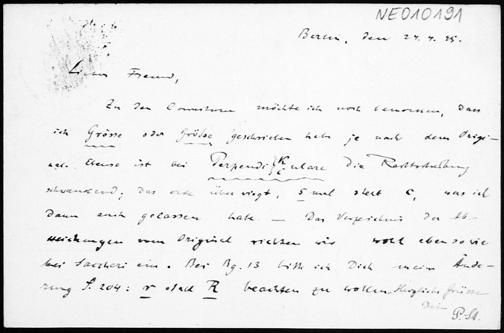 NE010191
Berlin, den 24. 4. 95.
Lieber Freund,
Zu den Correcturen möchte ich noch bemerken, dass
ich Grösse oder Größe geschrieben habe je nach dem Origi-
nal. Ebenso ist bei Perpendi{k/c}ulare die Rechtschreibung
schwankend; das erste überwiegt, 5 mal steht c, was ich
dann auch gelassen habe — Das Verzeichnis der Ab-
weichungen vom Original richten wir wohl ebenso wie
bei Saccheri ein. Bei Bg. 13 bitte ich Dich meine Ände-
rung S. 204: r statt R beachten zu wollen. Herzliche Grüsse
Dein
P. St.